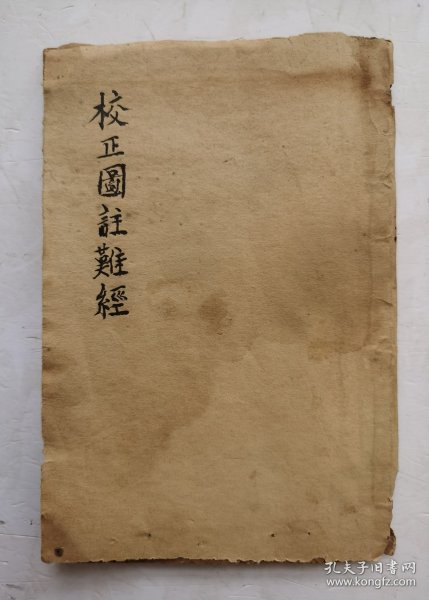 校正圖註難經
孔夫子旧书网
www.kongfz.com